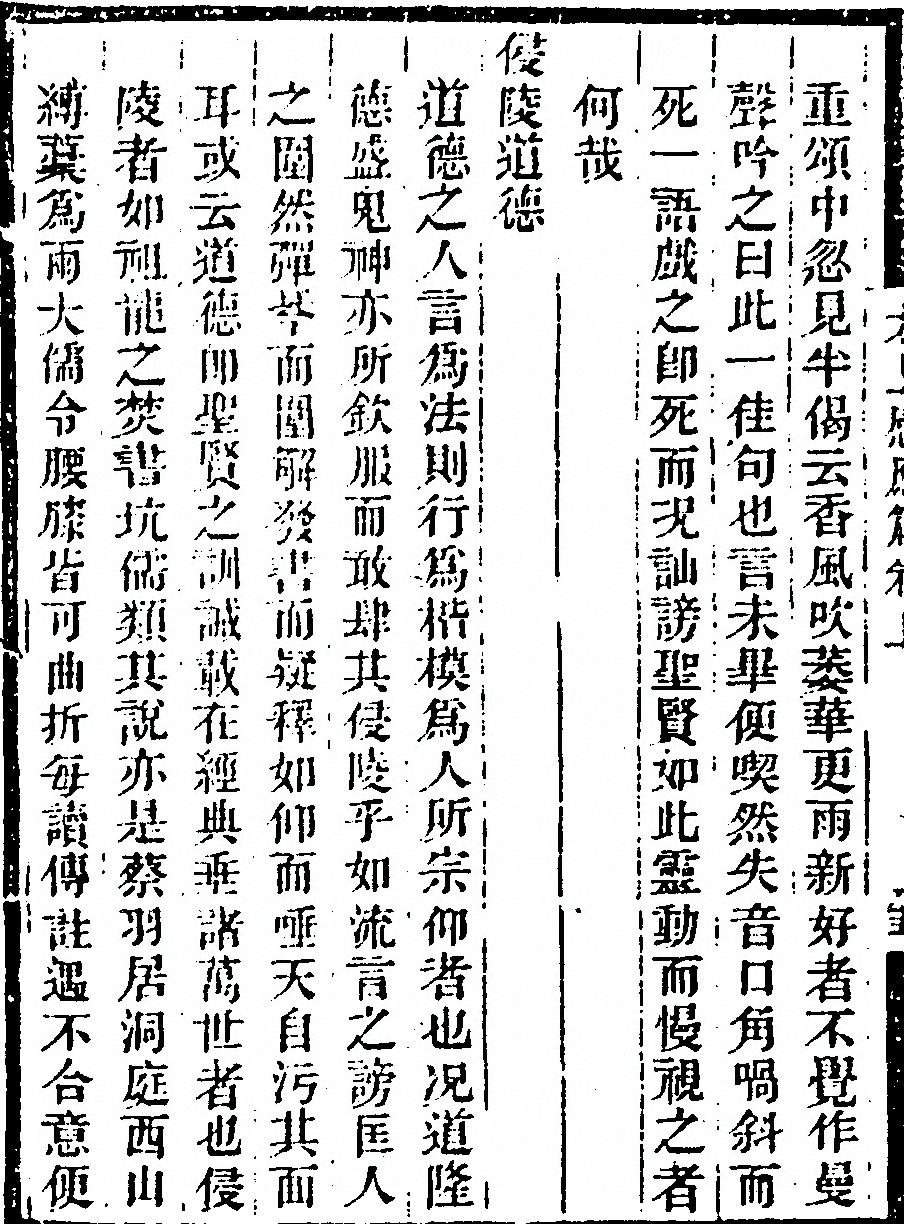 重頌中忽見半偈云香風吹萎華更雨新好者不覺作曼
聲吟之曰此一佳句也言未畢便喫然失音口角喎斜而
死一語戲之卽死而况訕謗聖賢如此靈動而慢視之者
何哉
侵陵道德
道德之人言爲法則行爲楷模爲人所宗仰者也况道隆
德盛鬼神亦所欽服而敢肆其侵陵乎如流言之謗匡人
之圍然彈琴而圍解發書而疑釋如仰而唾天自污其面
耳或云道德卽聖賢之訓誡載在經典垂諸萬世者也侵
陵者如祖龍之焚書坑儒類其說亦是蔡羽居洞庭西山
縛葉爲兩大儒令腰膝皆可曲折每讀傳註遇不合意便